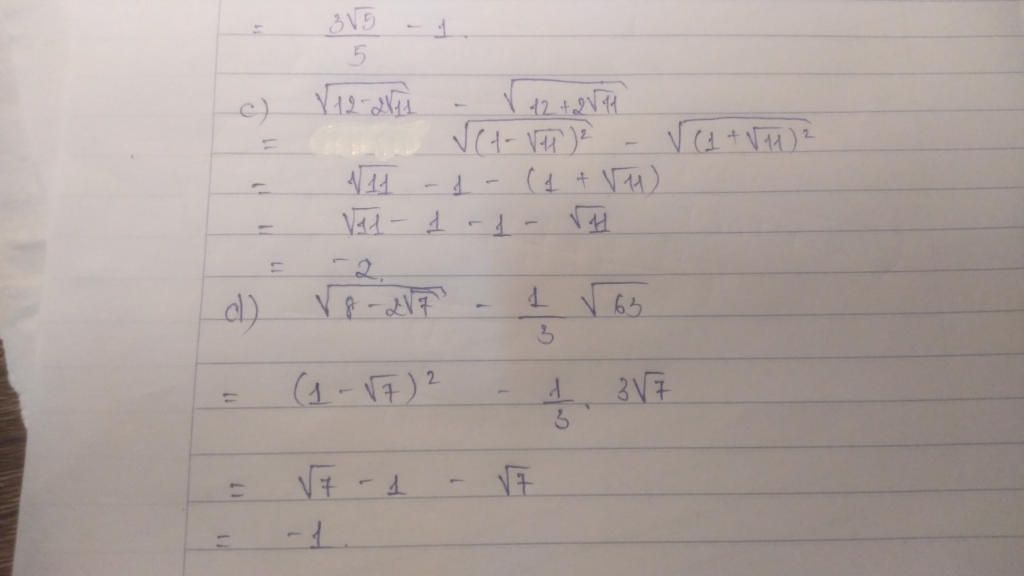 = 3√5/5 - 1.
c) √(12 - 2√11) - √(12 + 2√11)
= √((1 - √11)²) - √((1 + √11)²)
= √11 - 1 - (1 + √11)
= √11 - 1 - 1 - √11
= -2.
d) √(8 - 2√7) - 1/3 √63
= (1 - √7)² - 1/3 . 3√7
= √7 - 1 - √7
= -1.